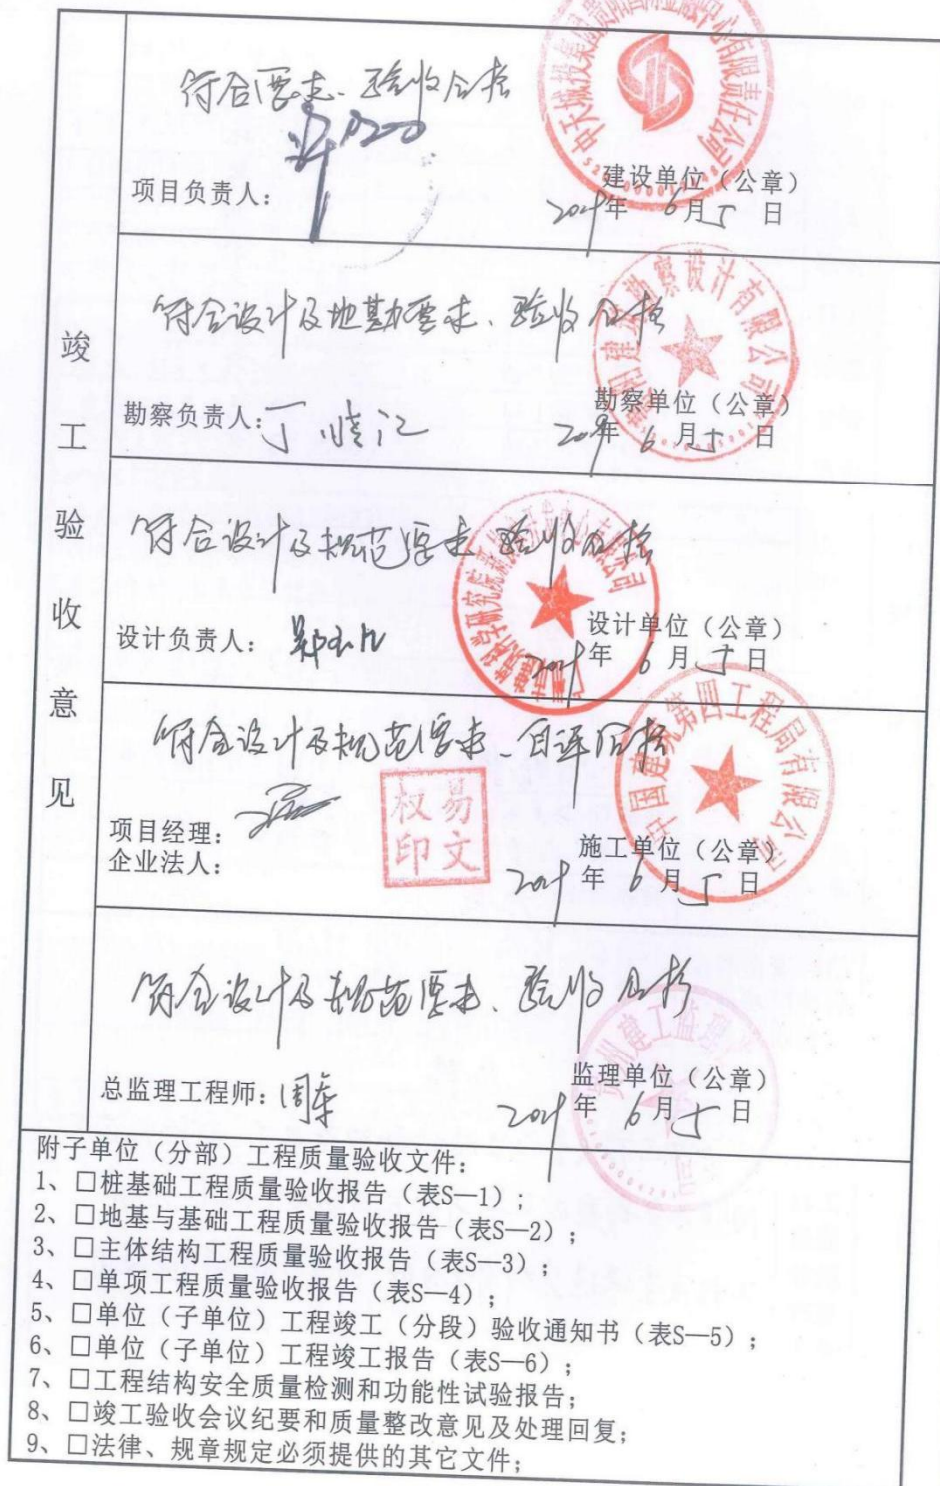 竣工验收意见
符合要求、验收合格
项目负责人:
中天城投集团贵阳国际金融中心有限责任公司
建设单位(公章)
年 6月5日
符合设计及地勘要求、验收合格
勘察负责人:
勘察设计有限公司
勘察单位(公章)
年 6月5日
符合设计及规范要求 验收合格
设计负责人:
设计单位(公章)
年 6月5日
符合设计及规范要求、自评合格
项目经理:
企业法人:
易文权印
中国建筑第四工程局有限公司
施工单位(公章)
年 6月5日
符合设计及规范要求、验收合格
总监理工程师:
建工监理
监理单位(公章)
年 6月5日
附子单位(分部)工程质量验收文件:
1、□桩基础工程质量验收报告(表S—1);
2、□地基与基础工程质量验收报告(表S—2);
3、□主体结构工程质量验收报告(表S—3);
4、□单项工程质量验收报告(表S—4);
5、□单位(子单位)工程竣工(分段)验收通知书(表S—5);
6、□单位(子单位)工程竣工报告(表S—6);
7、□工程结构安全质量检测和功能性试验报告;
8、□竣工验收会议纪要和质量整改意见及处理回复;
9、□法律、规章规定必须提供的其它文件;